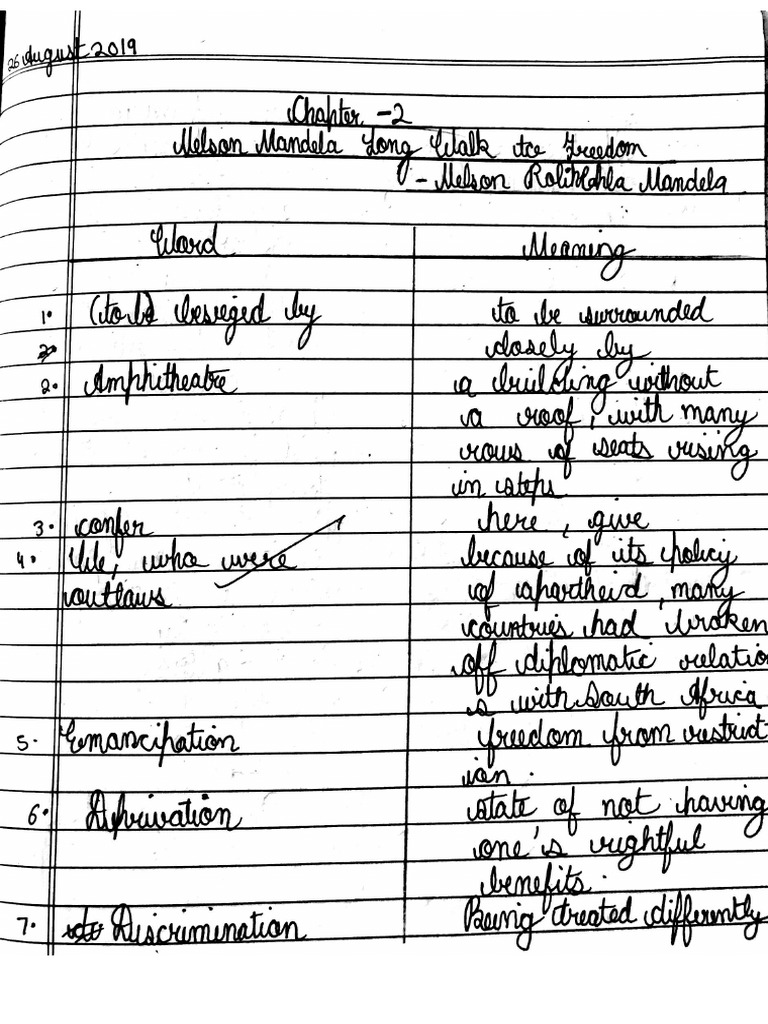 26 August 2019
Chapter -2
Nelson Mandela Long Walk to Freedom
- Nelson Rolihlahla Mandela
Word Meaning
1. (to be) besieged by to be surrounded
closely by
2. Amphitheatre a building without
a roof, with many
rows of seats rising
in steps
3. confer here, give
4. We, who were because of its policy
outlaws of apartheid, many
countries had broken
off diplomatic relatio
s with South Africa
5. Emancipation freedom from restrict
ion.
6. Deprivation state of not having
one's rightful
benefits.
7. Discrimination Being treated differently